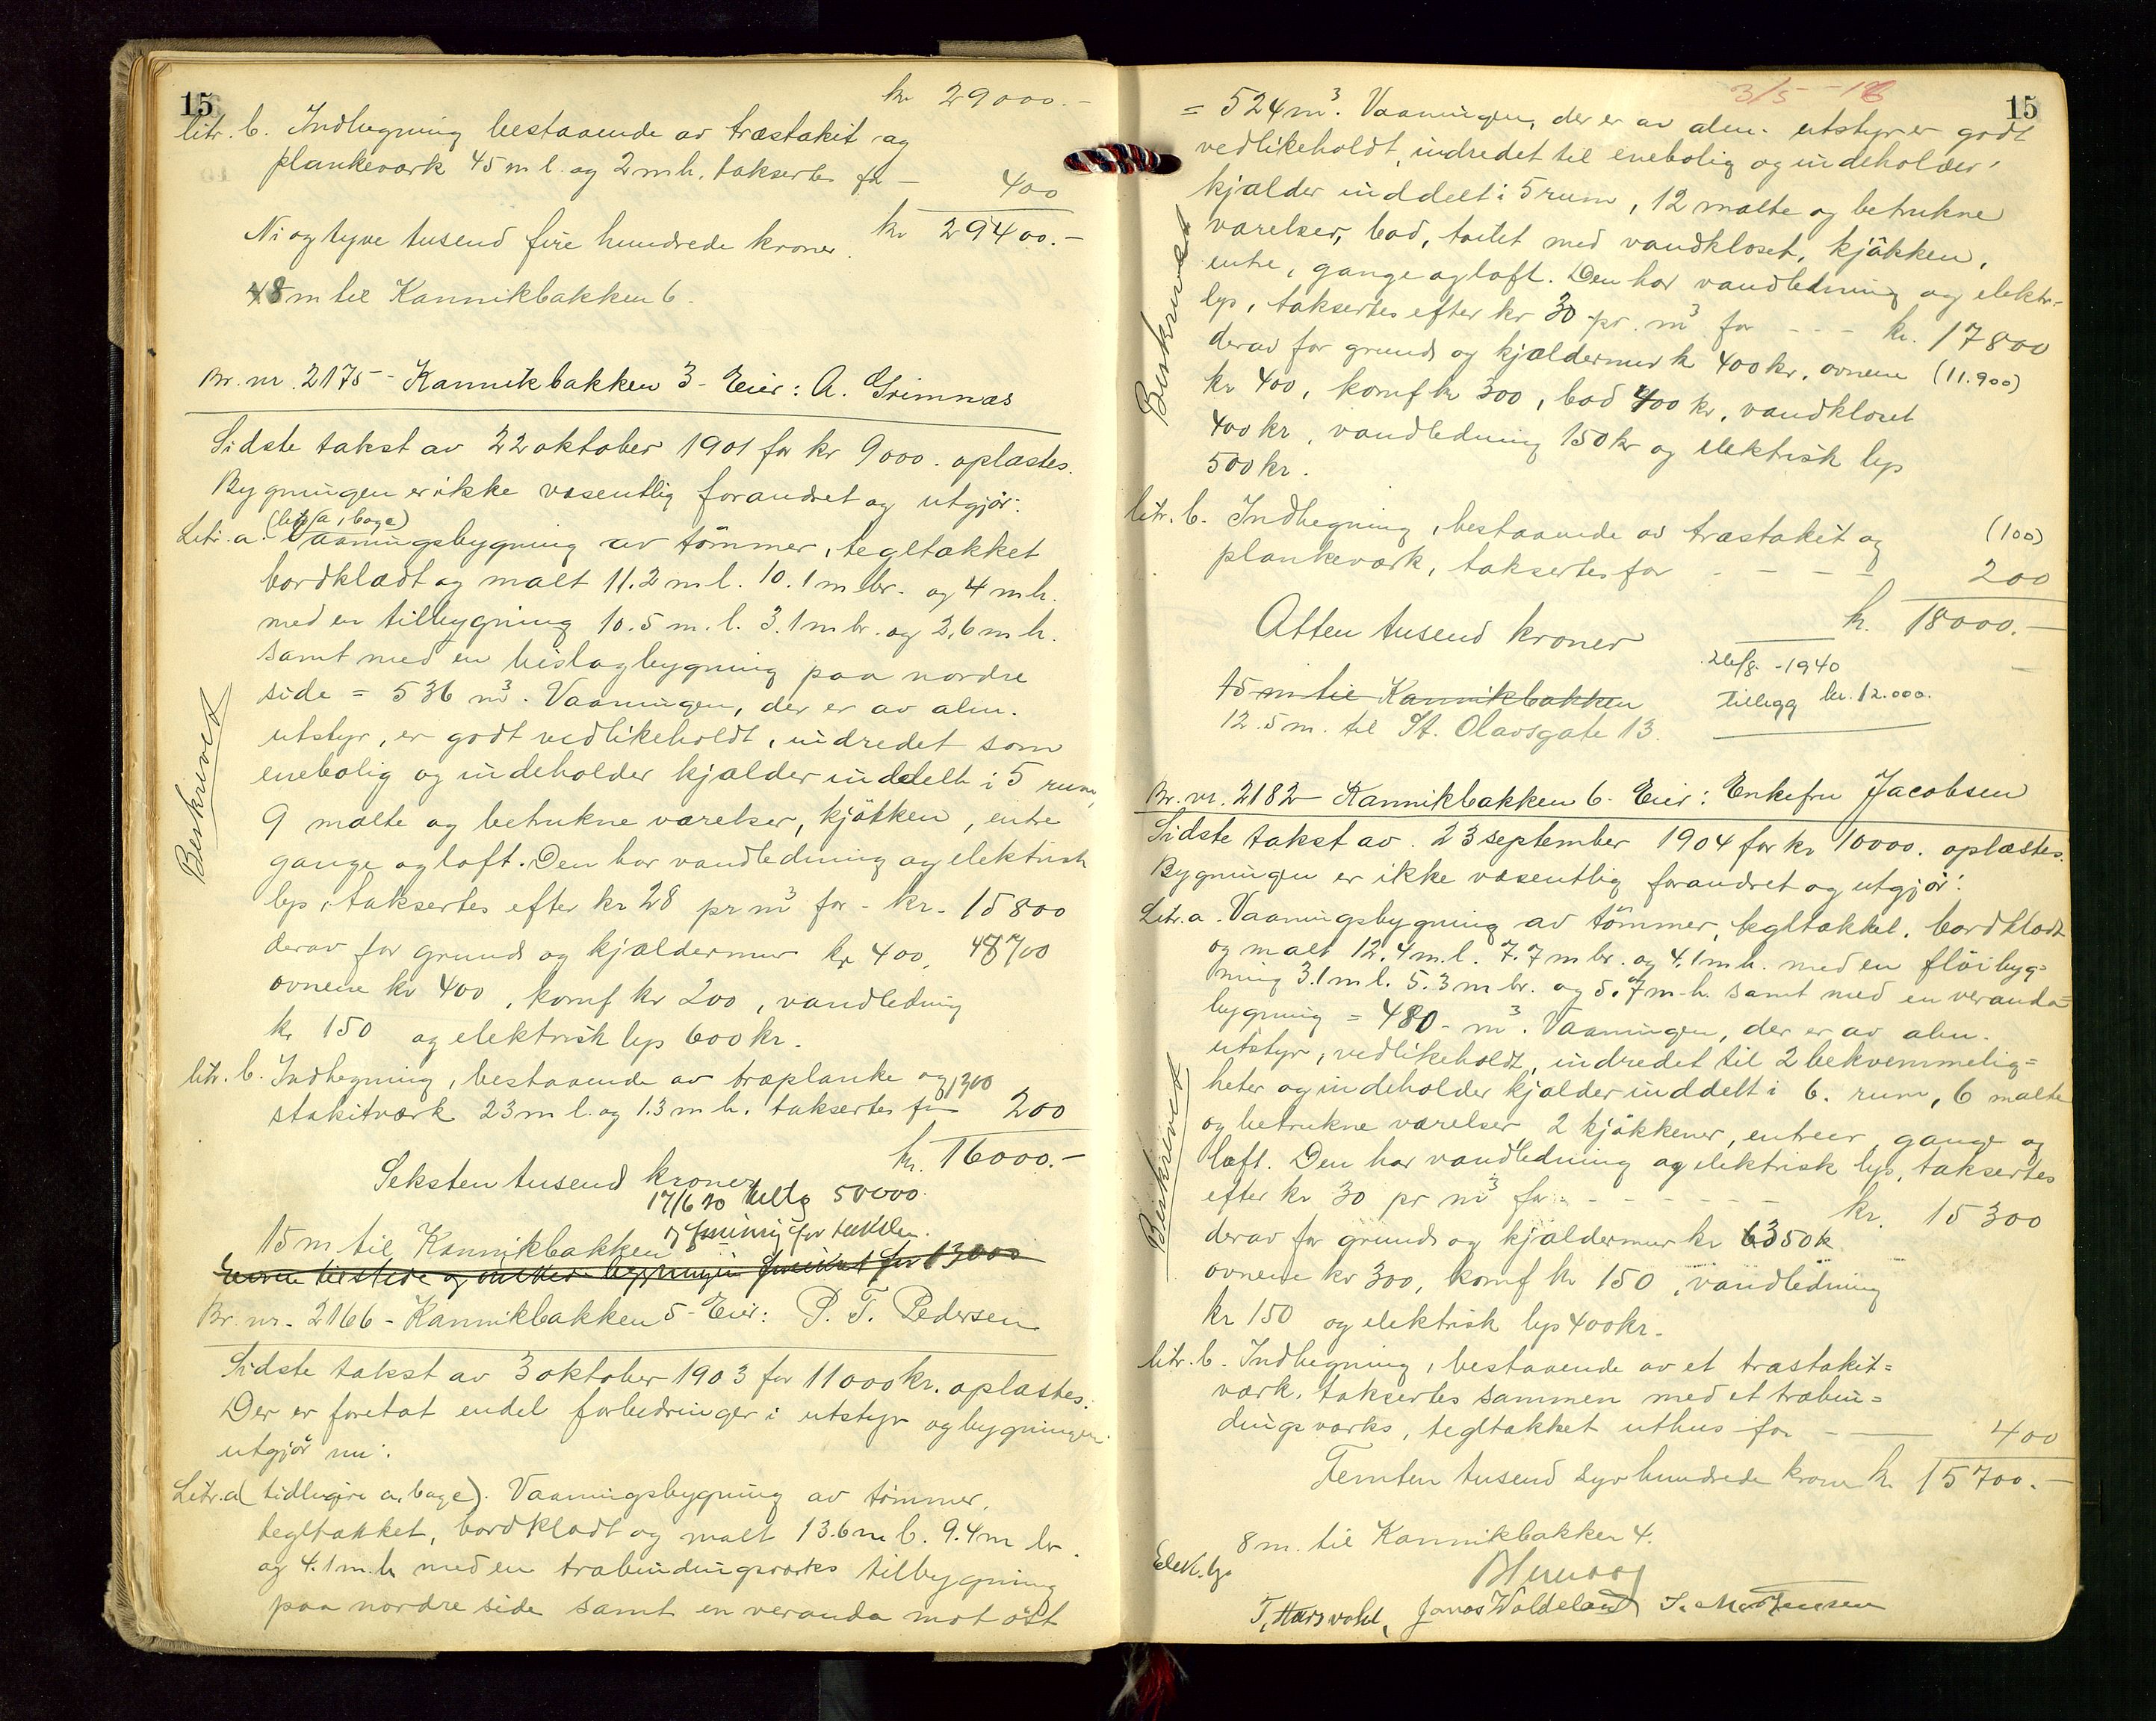 15
kr 29000.-
litr. b. Indhegning bestaaende av træstakit og
plankeværk 45 m l. og 2 m h. takseres for - 400
Ni og tyve tusend fire hundrede kroner. kr 29400.-
48 m til Kannikbakken 6.
Br. nr. 2175 - Kannikbakken 3 - Eier: A. Grimnæs
Sidste takst av 22 oktober 1901 for kr 9000. oplæstes.
Bygningen er ikke væsentlig forandret og utgjör:
(litr a, b og c)
Litr. a. Vaaningsbygning av tömmer, tegltækket
bordklædt og malt 11.2 m l. 10.1 m br. og 4 m h.
med en tilbygning 10.5 m. l. 3.1 m br. og 2,6 m h.
samt med en bislagbygning paa nordre
side = 536 m³. Vaaningen, der er av alm.
utstyr, er godt vedlikeholdt, indredet som
enebolig og indeholder kjælder inddelt i 5 rum,
9 malte og betrukne værelser, kjökken, entre
gange og loft. Den har vandledning og elektrisk
lys, taksertes efter kr 28 pr m³ for - kr. 15800
derav for grund og kjældermur kr 400, 48700
ovnene kr 400, komf kr 200, vandledning
kr 150 og elektrisk lys 600 kr.
litr. b. Indhegning, bestaaende av træplanke og 1300
stakitværk 23 m l. og 1.3 m h. taksertes for 200
kr. 16000.-
Seksten tusend kroner
17/6 20 50000.
15 m til Kannikbakken 5 for taksten.
Eieren tilstede og bygningen for 13000
Br. nr. 2166 - Kannikbakken 5 - Eier: P. T. Pedersen
Sidste takst av 3 oktober 1903 for 11000 kr. oplæstes.
Der er foretat endel forbedringer i utstyr og bygningen
utgjör nu:
Litr. a (tidligere a, b og c). Vaaningsbygning av tömmer,
tegltækket, bordklædt og malt 13.6 m l. 9.4 m br.
og 4.1 m. h med en træbindingsværks tilbygning
paa nordre side samt en veranda mot öst
Beskrevet
3/5 - 16
15
= 524 m³. Vaaningen, der er av alm. utstyr er godt
vedlikeholdt, indredet til enebolig og indeholder:
kjælder inddelt i 5 rum, 12 malte og betrukne
værelser, bad, toilet med vandkloset, kjökken,
entre, gange og loft. Den har vandledning og elektr.
lys, taksertes efter kr 30 pr. m³ for - - - kr. 17800
derav for grund og kjældermur kr 400 kr, ovnene (11.900)
kr 400, komf kr 300, bad 400 kr, vandkloset
400 kr, vandledning 150 kr og elektrisk lys
500 kr.
Beskrevet
litr. b. Indhegning, bestaaende av træstakit og (100)
plankeværk, taksertes for - - - - 200
Atten tusend kroner kr. 18000.-
26/8 - 1940
Tillegg kr. 12.000.
15 m til Kannikbakken
12.5 m. til St. Olavsgate 13.
Br. nr. 2182 - Kannikbakken 6. Eier: Enkefru Jacobsen
Sidste takst av 23 september 1904 for kr 10000. oplæstes.
Bygningen er ikke væsentlig forandret og utgjör:
Litr. a. Vaaningsbygning av tömmer, tegltækket, bordklædt
og malt 12.4 m. l. 7.7 m br. og 4.1 m h. med en flöibyg=
ning 3.1 m l. 5.3 m br. og 5.7 m. h. samt med en veranda=
bygning = 480 - m³. Vaaningen, der er av alm.
utstyr, vedlikeholdt, indredet til 2 bekvemmelig=
heter og indeholder kjælder inddelt i 6. rum, 6 malte
og betrukne værelser 2 kjökkener, entreer, gange og
loft. Den har vandledning og elektrisk lys, taksertes
efter kr 30 pr m³ for - - - - - - kr. 15300
derav for grund og kjældermur kr 350 kr
ovnene kr 300, komf kr 150, vandledning
kr 150 og elektrisk lys 400 kr.
Beskrevet
litr. b. Indhegning, bestaaende av et træstakit=
værk, taksertes sammen med et træbin=
dingsværks, tegltækket uthus for - 400
Femten tusend syv hundrede kroner kr. 15700.-
8 m. til Kannikbakken 4.
Elek. lys
Jonas Woldeland